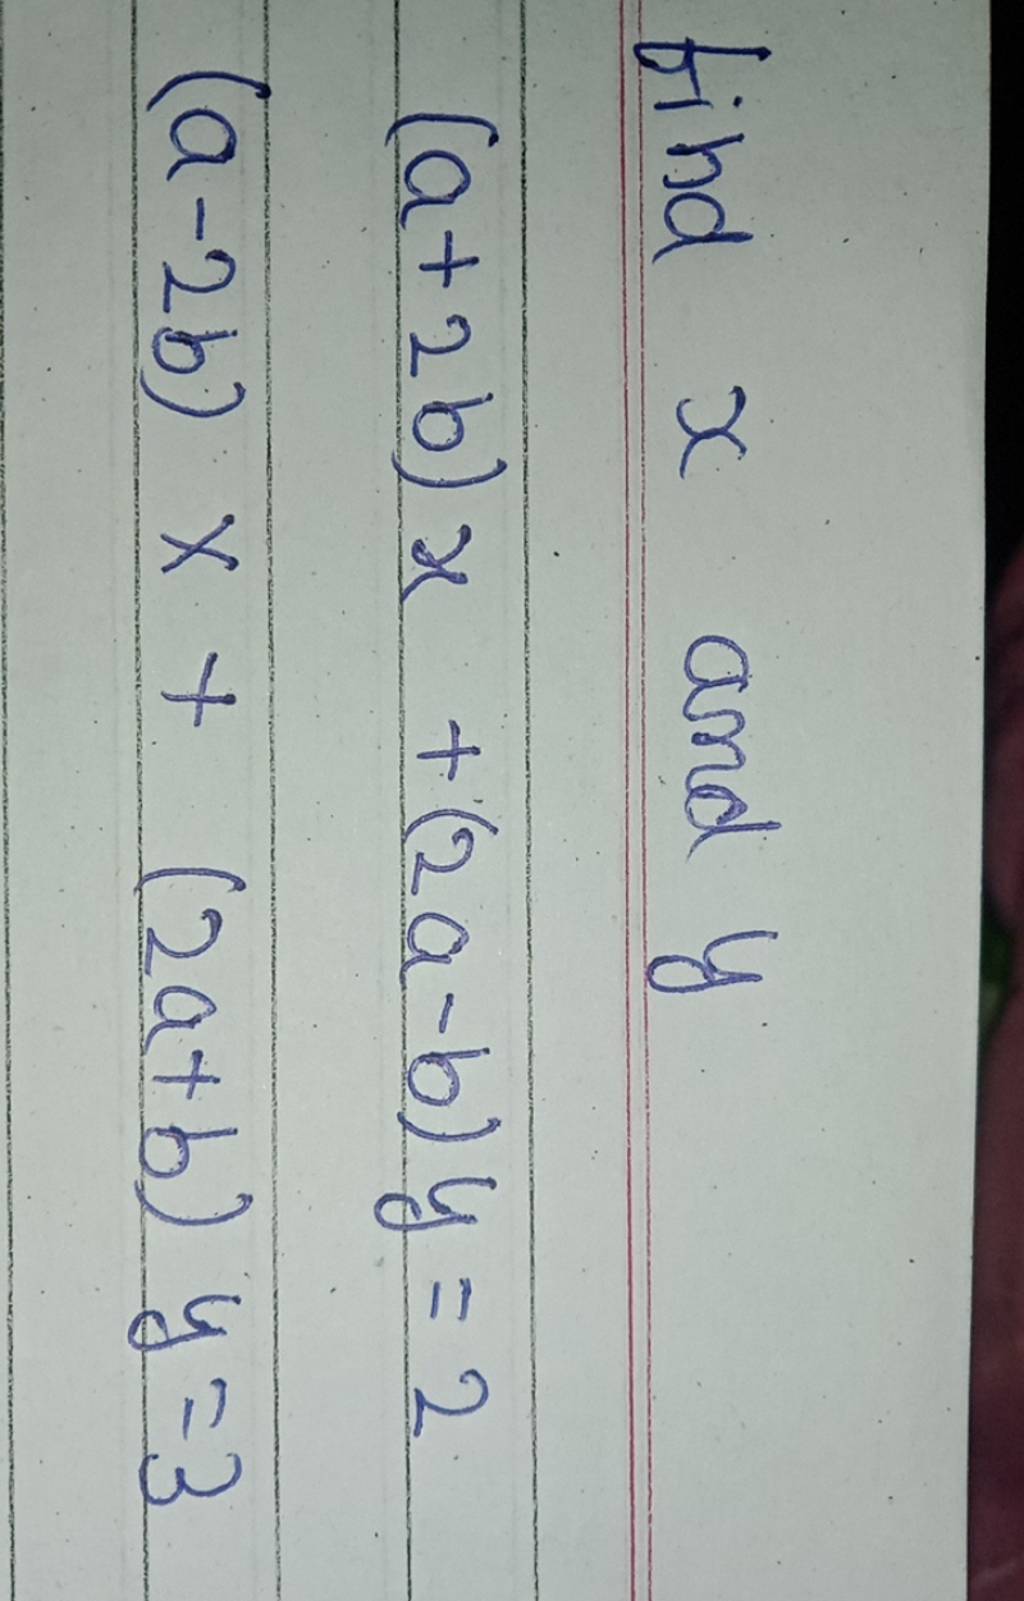 find x and y
(a+2b)x +(2a-b)y=2
(a-2b) x + (2a+b) y=3